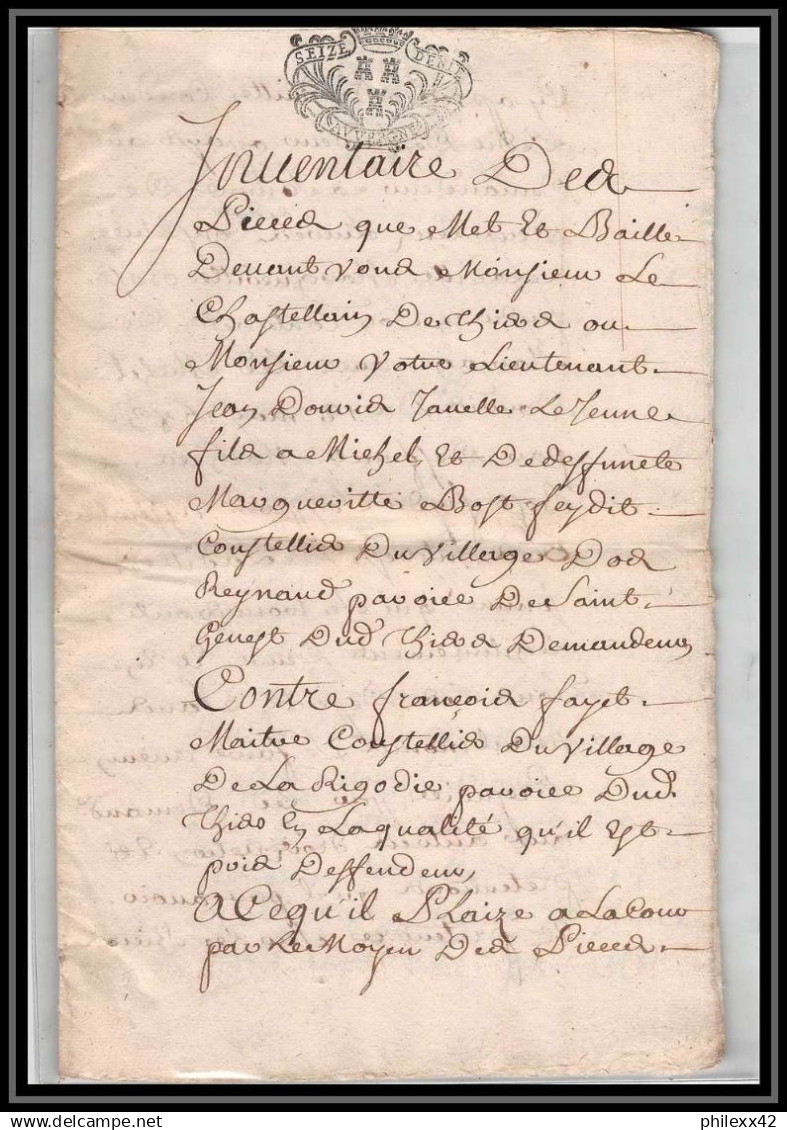 SEIZE DENIE
AUVERGNE
Inventaire Des
Pieces que Met Et Baille
Devant vous Monsieur Le
Chastellain De Thiers ou
Monsieur Votre Lieutenant
Jean Douvis Javelle Le Jeune
fils a Michel Et De deffuncte
Margueritte Bost feydit
Coustellis Du Village Dos
Reynaud parroice De Saint
Genest Dud Thiers Demandeur
Contre francois fayet
Maitre Coustellis Du Village
De La Rigodie parroice Dud
Thiers En La qualité qu'il Est
pris Deffendeur
A Ce qu'il Plaize a La Cour
par Le Moyen Des Pieces
philexx42